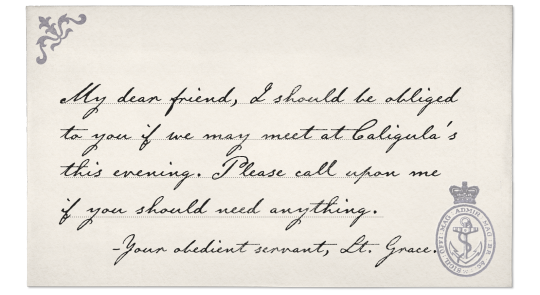 My dear friend, I should be obliged
to you if we may meet at Caligula's
this evening. Please call upon me
if you should need anything.
-Your obedient servant, Lt. Grace.